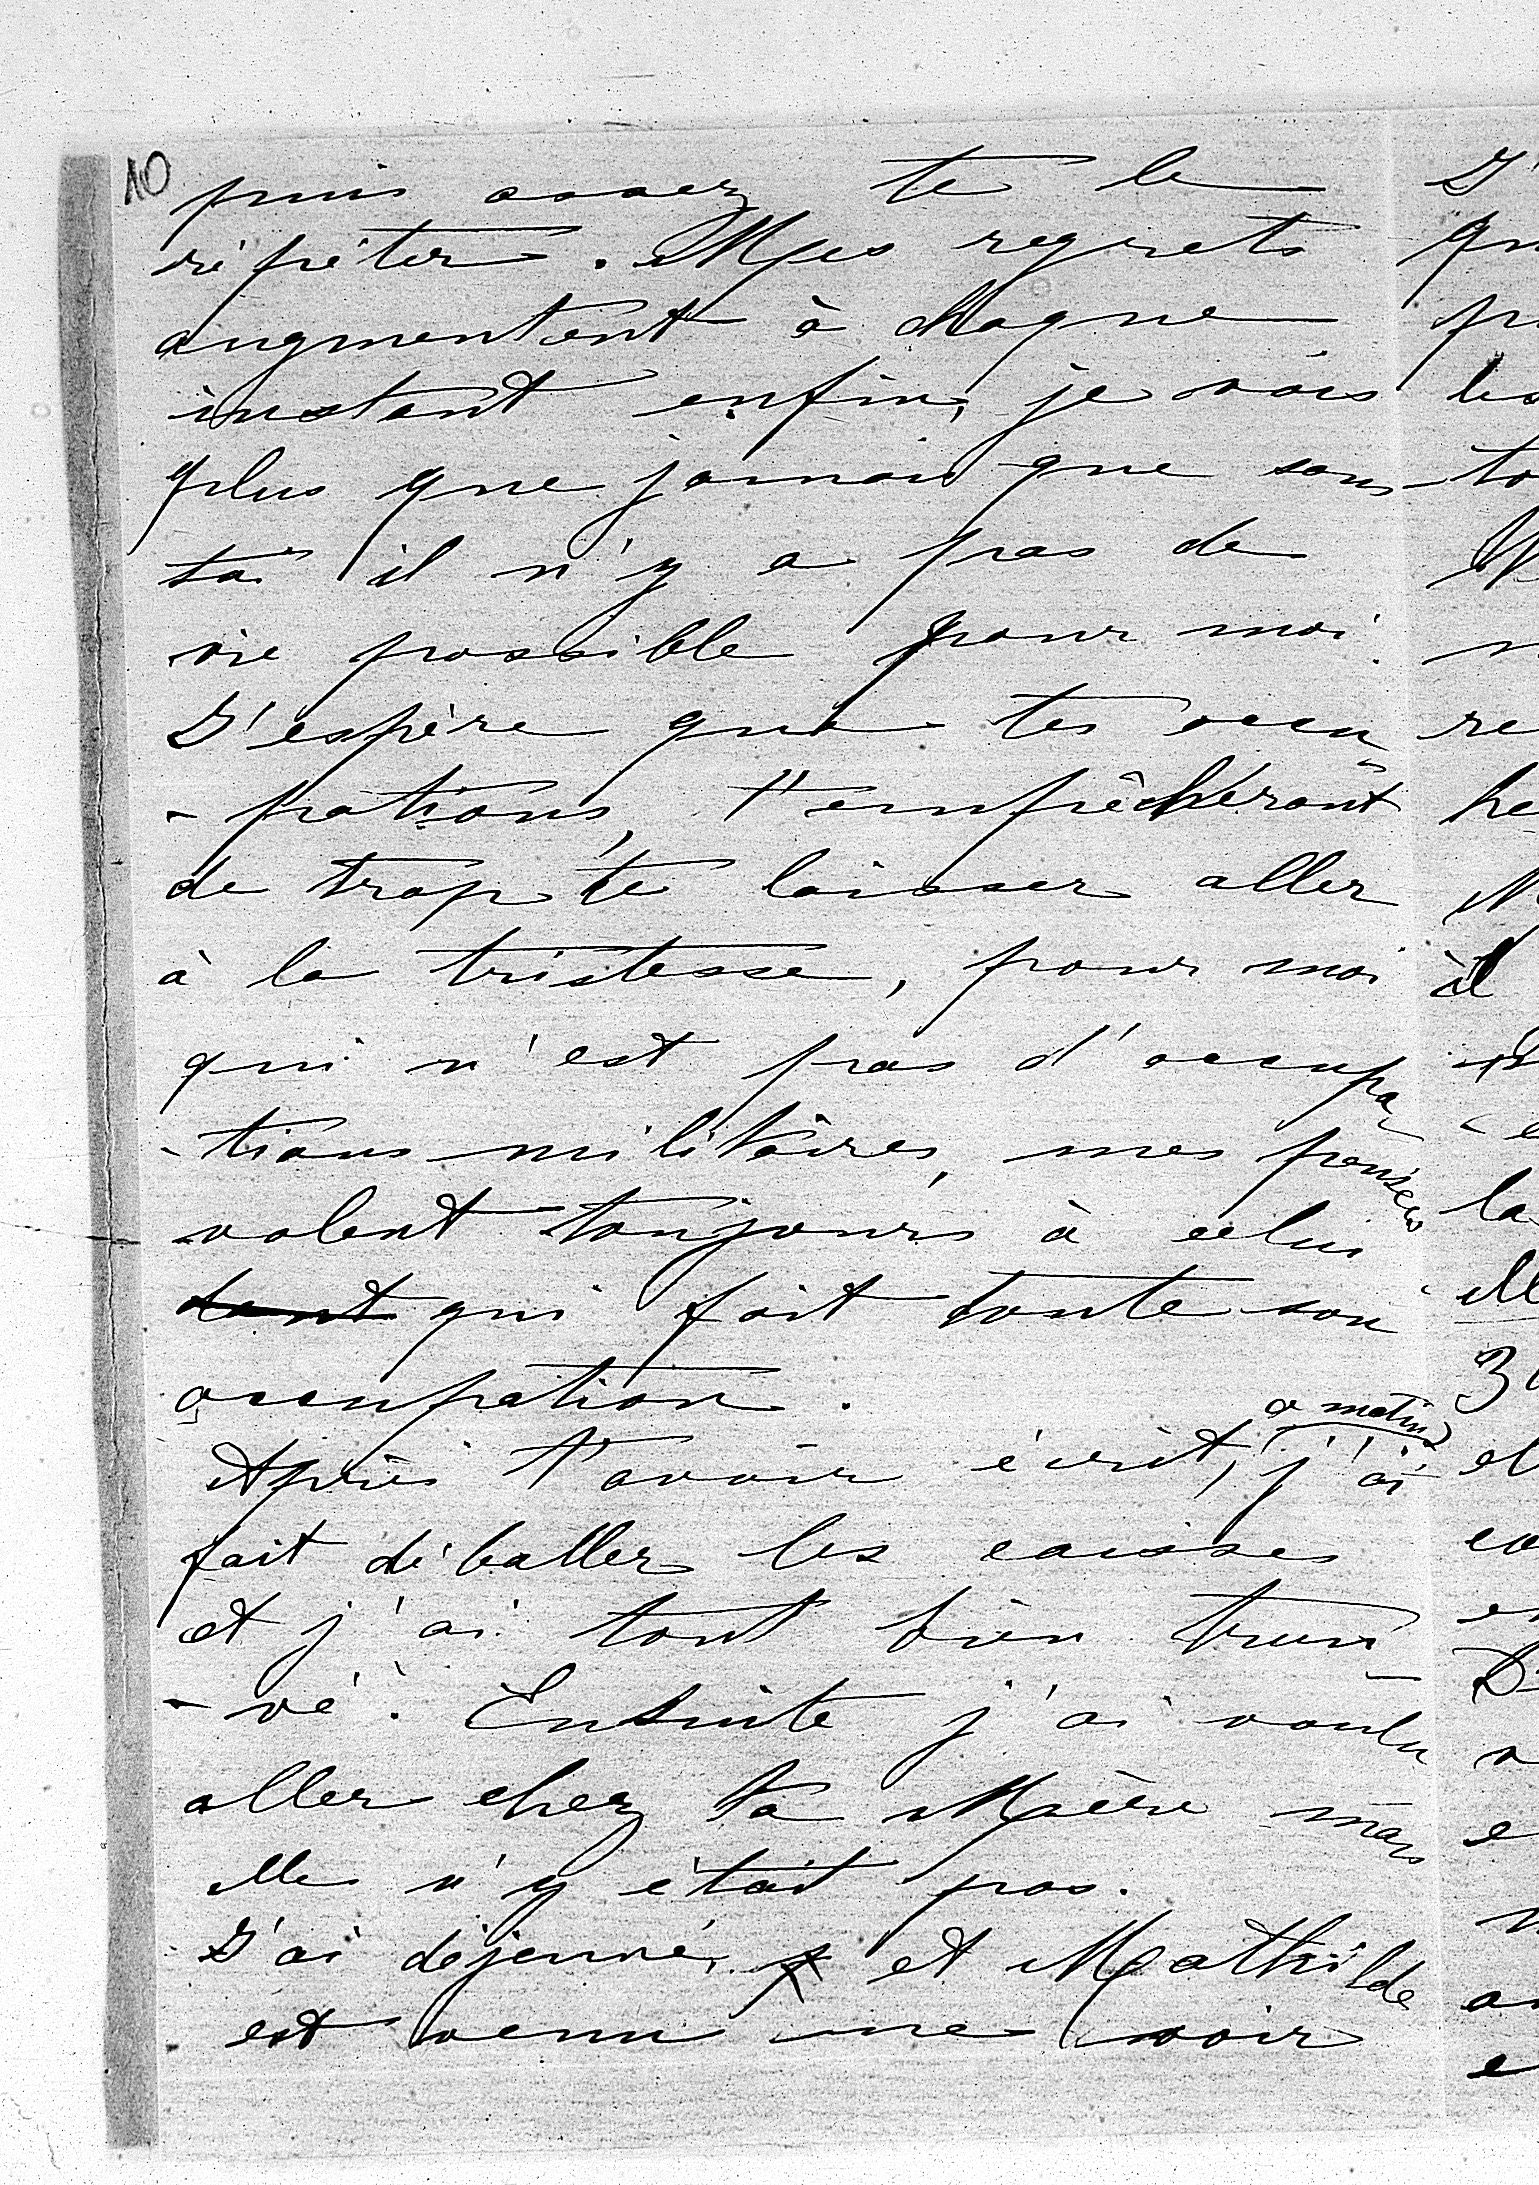 10
puis assez te le
répéter. Mes regrets
augmentent à chaque
instant enfin, je vois
plus que jamais que sans
toi il n'y a pas de
vie possible pour moi.
J'espère que tes occu
- pations, t'empêcheront
de trop te laisser aller
à la tristesse, pour moi
qui n'est pas d'occupa
- tions militaires, mes pensées
volent toujours à celui
qui fait toute son
occupation.
Après t'avoir écrit, ce matin j'ai
fait déballer les caisses
et j'ai tout bien trou
- vé. Ensuite j'ai voulu
aller chez ta Mère mais
elle n'y était pas.
J'ai déjeuné, et Mathilde
est venu me voir